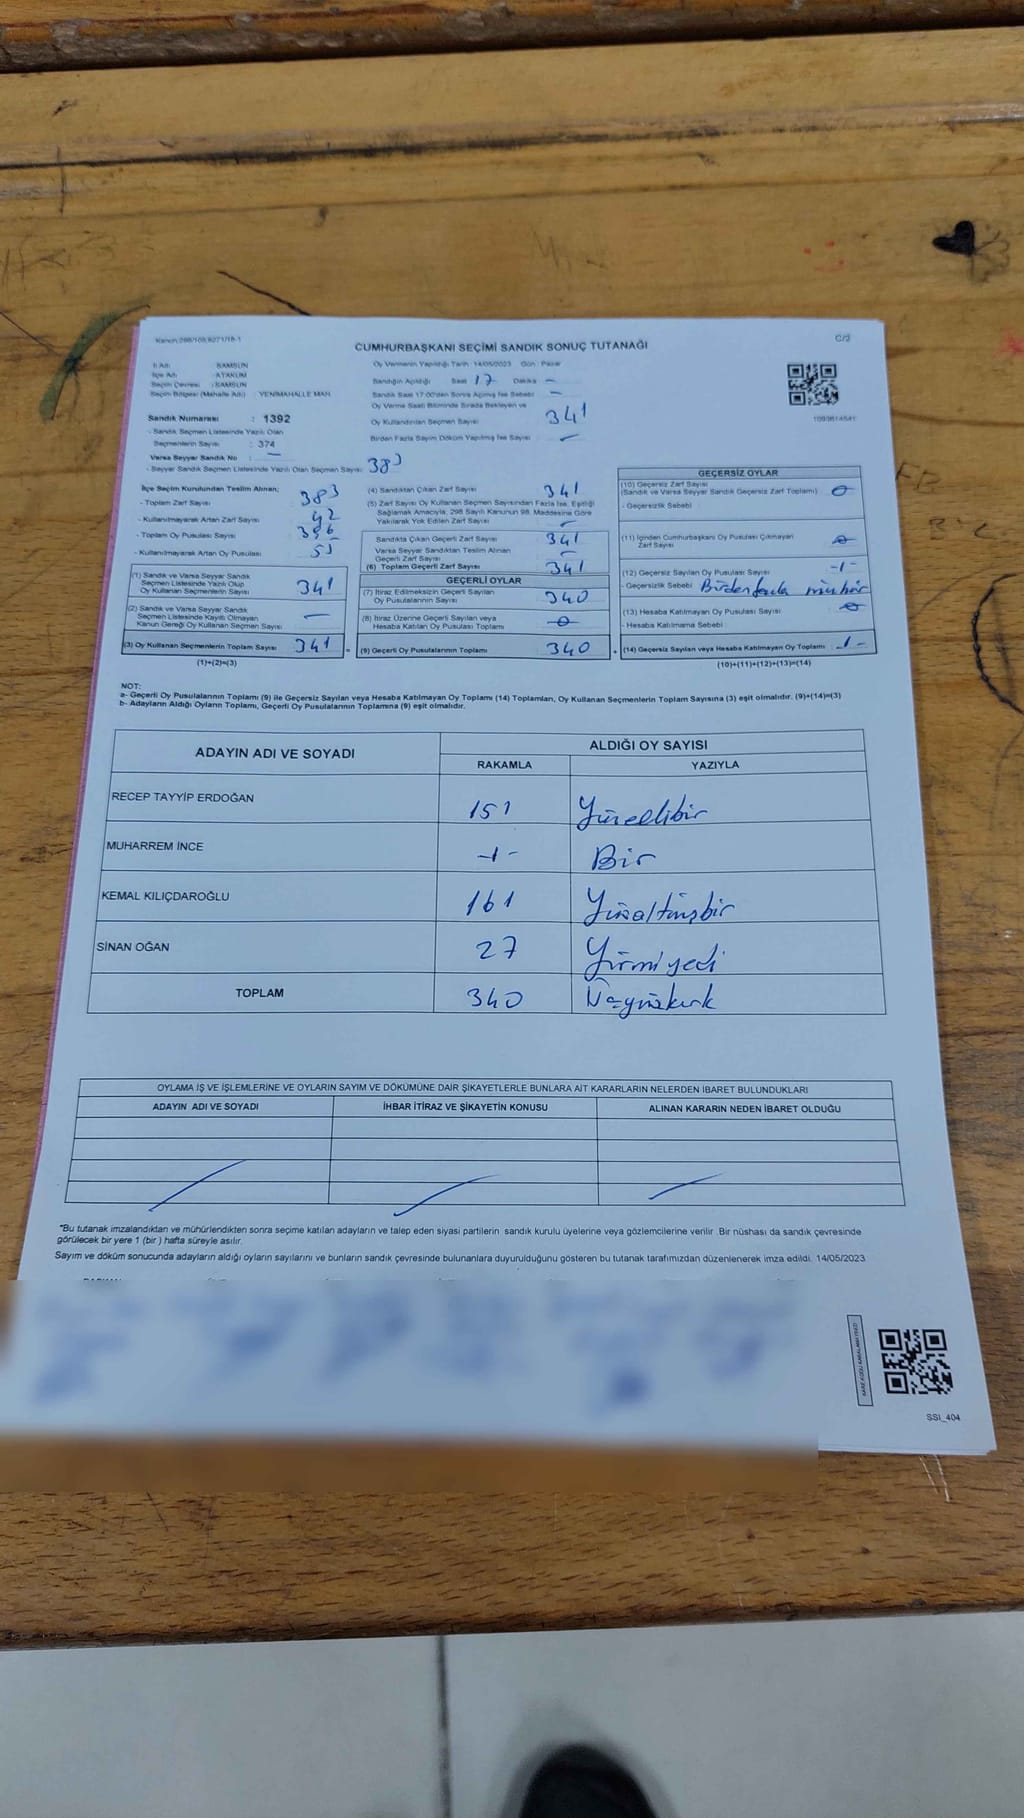 Kanun:298/109,6271/18-1
C/2
CUMHURBAŞKANI SEÇİMİ SANDIK SONUÇ TUTANAĞI
İl Adı : SAMSUN
İlçe Adı : ATAKUM
Seçim Çevresi : SAMSUN
Seçim Bölgesi (Mahalle Adı) : YENİMAHALLE MAH.
Sandık Numarası : 1392
- Sandık Seçmen Listesinde Yazılı Olan
Seçmenlerin Sayısı : 374
Varsa Seyyar Sandık No : —
- Seyyar Sandık Seçmen Listesinde Yazılı Olan Seçmen Sayısı: 383
Oy Vermenin Yapıldığı Tarih: 14/05/2023 Gün : Pazar
Sandığın Açıldığı Saat 17 Dakika —
Sandık Saat 17:00'den Sonra Açılmış İse Sebebi: —
Oy Verme Saati Bitiminde Sırada Bekleyen ve
Oy Kullandırılan Seçmen Sayısı 341
Birden Fazla Sayım Döküm Yapılmış İse Sayısı —
1099614541
İlçe Seçim Kurulundan Teslim Alınan;
- Toplam Zarf Sayısı 383
- Kullanılmayarak Artan Zarf Sayısı 42
- Toplam Oy Pusulası Sayısı 396
- Kullanılmayarak Artan Oy Pusulası 55
(1) Sandık ve Varsa Seyyar Sandık
Seçmen Listesinde Yazılı Olup
Oy Kullanan Seçmenlerin Sayısı 341
(2) Sandık ve Varsa Seyyar Sandık
Seçmen Listesinde Kayıtlı Olmayan
Kanun Gereği Oy Kullanan Seçmen Sayısı —
(3) Oy Kullanan Seçmenlerin Toplam Sayısı 341
(1)+(2)=(3)
(4) Sandıktan Çıkan Zarf Sayısı 341
(5) Zarf Sayısı Oy Kullanan Seçmen Sayısından Fazla İse, Eşitliği
Sağlamak Amacıyla, 298 Sayılı Kanunun 98. Maddesine Göre
Yakılarak Yok Edilen Zarf Sayısı —
Sandıkta Çıkan Geçerli Zarf Sayısı 341
Varsa Seyyar Sandıktan Teslim Alınan
Geçerli Zarf Sayısı —
(6) Toplam Geçerli Zarf Sayısı 341
GEÇERLİ OYLAR
(7) İtiraz Edilmeksizin Geçerli Sayılan
Oy Pusulalarının Sayısı 340
(8) İtiraz Üzerine Geçerli Sayılan veya
Hesaba Katılan Oy Pusulası Toplamı 0
= (9) Geçerli Oy Pusulalarının Toplamı 340
GEÇERSİZ OYLAR
(10) Geçersiz Zarf Sayısı
(Sandık ve Varsa Seyyar Sandık Geçersiz Zarf Toplamı) 0
- Geçersizlik Sebebi :
(11) İçinden Cumhurbaşkanı Oy Pusulası Çıkmayan
Zarf Sayısı 0
(12) Geçersiz Sayılan Oy Pusulası Sayısı -1-
- Geçersizlik Sebebi Birden fazla mühür
(13) Hesaba Katılmayan Oy Pusulası Sayısı 0
- Hesaba Katılmama Sebebi :
+ (14) Geçersiz Sayılan veya Hesaba Katılmayan Oy Toplamı -1-
(10)+(11)+(12)+(13)=(14)
NOT:
a- Geçerli Oy Pusulalarının Toplamı (9) ile Geçersiz Sayılan veya Hesaba Katılmayan Oy Toplamı (14) Toplamları, Oy Kullanan Seçmenlerin Toplam Sayısına (3) eşit olmalıdır. (9)+(14)=(3)
b- Adayların Aldığı Oyların Toplamı, Geçerli Oy Pusulalarının Toplamına (9) eşit olmalıdır.
ADAYIN ADI VE SOYADI ALDIĞI OY SAYISI
RAKAMLA YAZIYLA
RECEP TAYYİP ERDOĞAN 151 Yüzellibir
MUHARREM İNCE -1- Bir
KEMAL KILIÇDAROĞLU 161 Yüzaltmışbir
SİNAN OĞAN 27 Yirmiyedi
TOPLAM 340 Üçyüzkırk
OYLAMA İŞ VE İŞLEMLERİNE VE OYLARIN SAYIM VE DÖKÜMÜNE DAİR ŞİKAYETLERLE BUNLARA AİT KARARLARIN NELERDEN İBARET BULUNDUKLARI
ADAYIN ADI VE SOYADI İHBAR İTİRAZ VE ŞİKAYETİN KONUSU ALINAN KARARIN NEDEN İBARET OLDUĞU
*Bu tutanak imzalandıktan ve mühürlendikten sonra seçime katılan adayların ve talep eden siyasi partilerin sandık kurulu üyelerine veya gözlemcilerine verilir. Bir nüshası da sandık çevresinde
görülecek bir yere 1 (bir) hafta süreyle asılır.
Sayım ve döküm sonucunda adayların aldığı oyların sayılarını ve bunların sandık çevresinde bulunanlara duyurulduğunu gösteren bu tutanak tarafımızdan düzenlenerek imza edildi. 14/05/2023
SSI_404